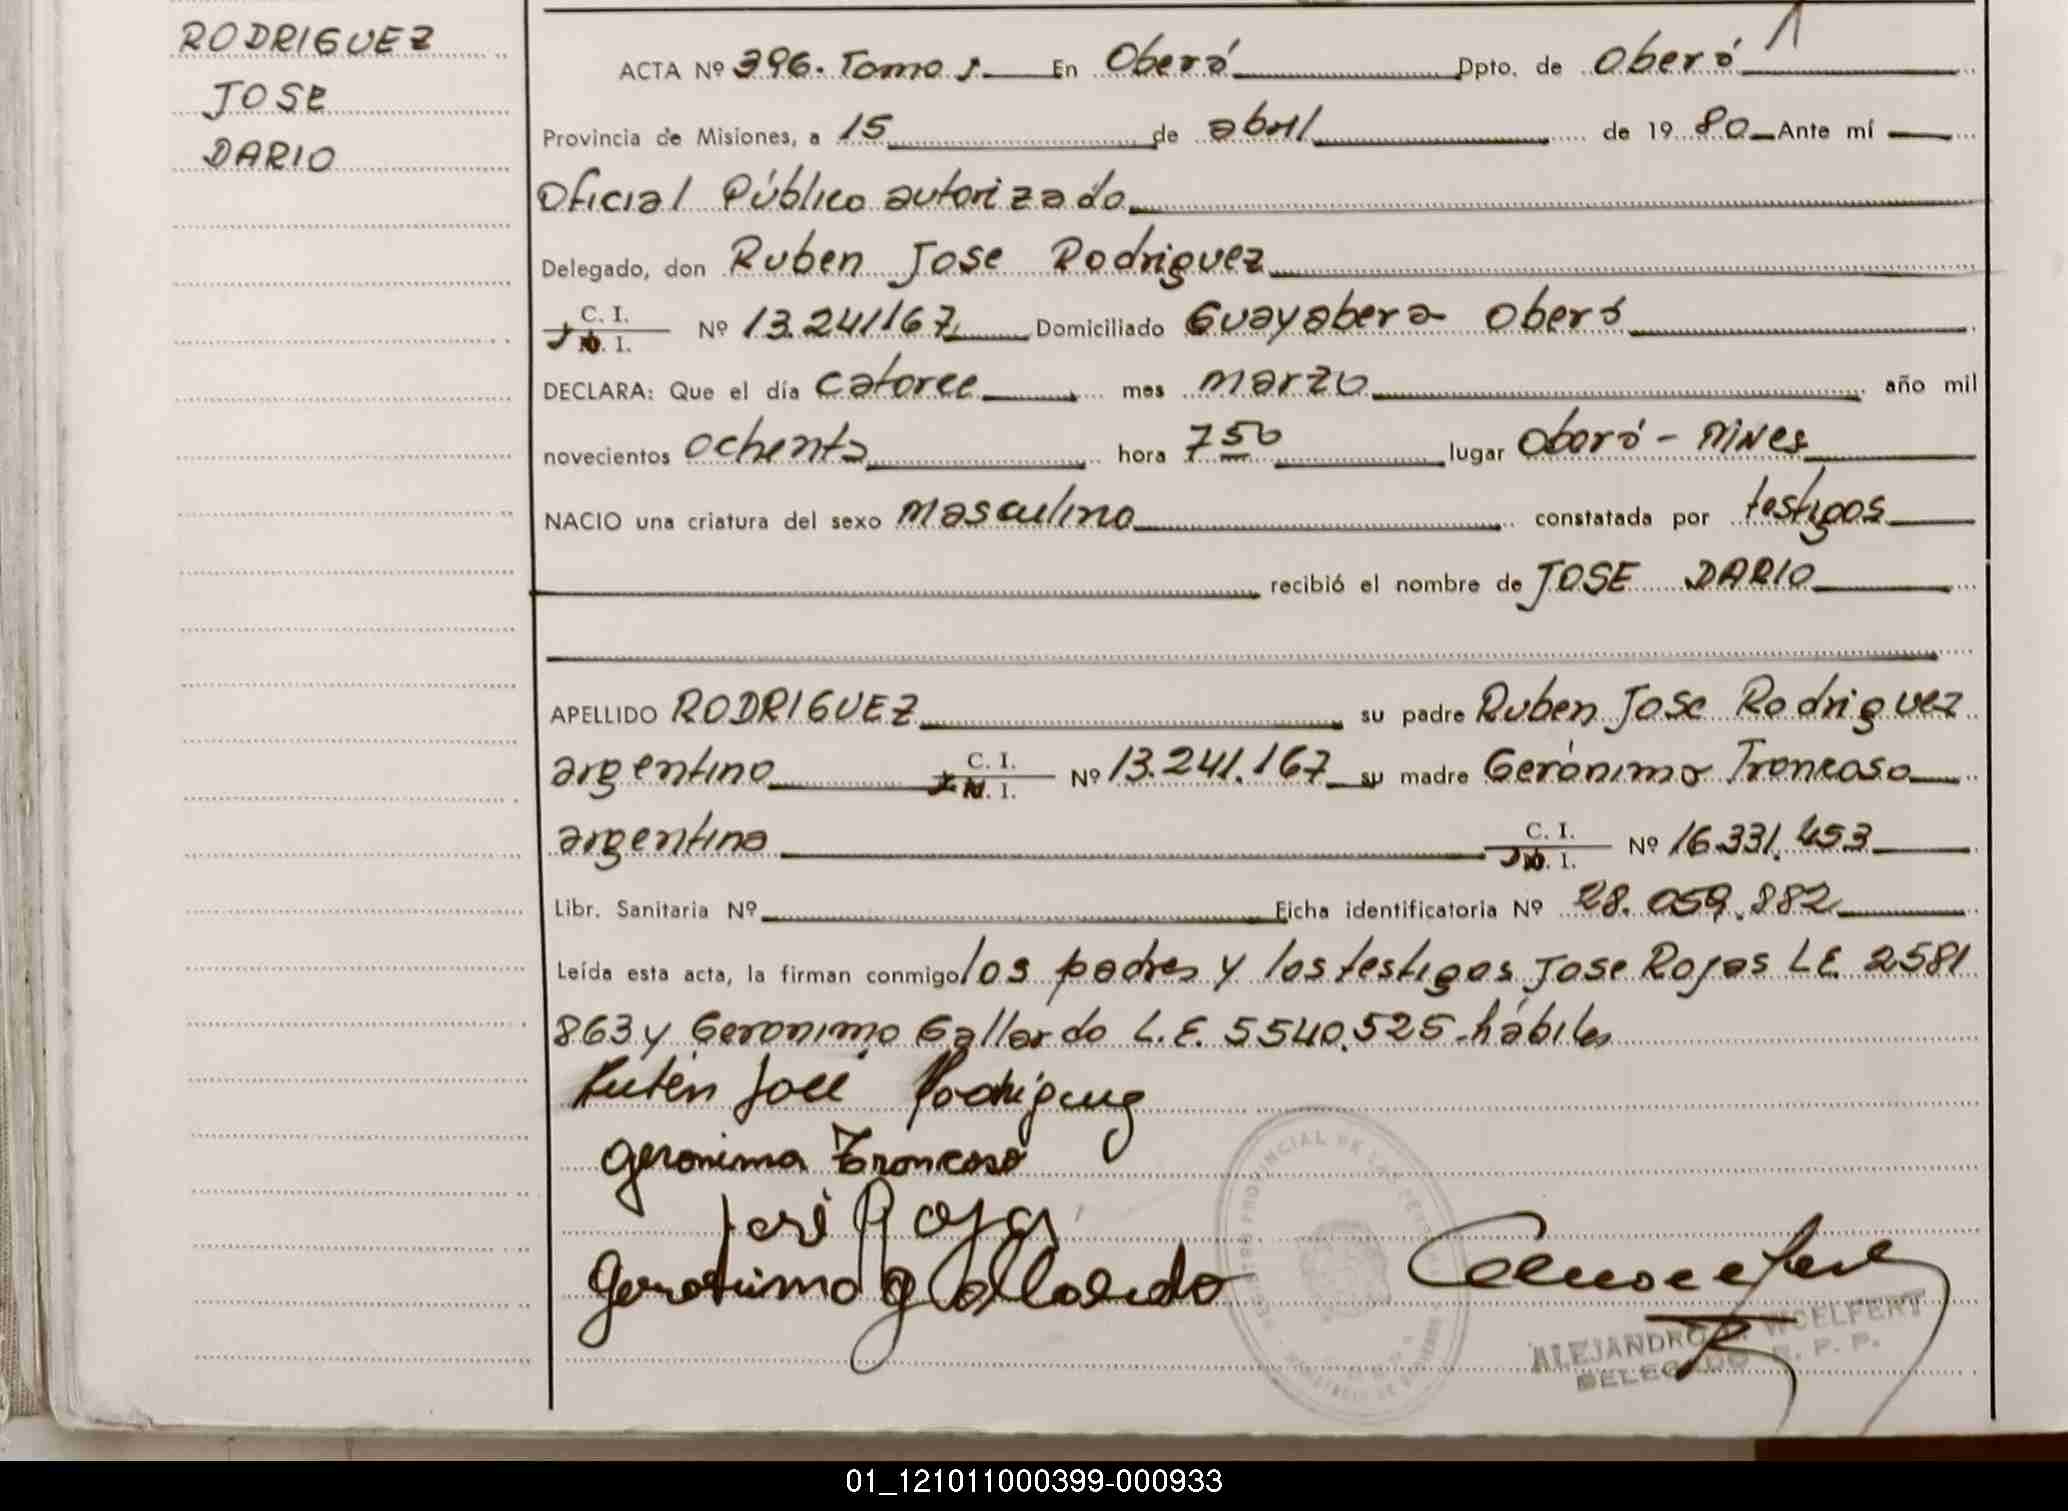 RODRIGUEZ
JOSE
DARIO
ACTA Nº 396. Tomo 1. En Oberá Dpto. de Oberá
Provincia de Misiones, a 15 de abril de 19 80 Ante mí
Oficial Público autorizado
Delegado, don Ruben Jose Rodriguez
C. I.
Nº 13.241167 Domiciliado Guayabera Oberá
I.
DECLARA: Que el día catorce mes marzo año mil
novecientos ochenta hora 7 50 lugar Oberá - Mnes
NACIO una criatura del sexo masculino constatada por testigos
recibió el nombre de JOSE DARIO
APELLIDO RODRIGUEZ su padre Ruben Jose Rodriguez
argentino C. I. Nº 13.241.167 su madre Gerónima Troncoso
I.
argentina C. I. Nº 16.331.453
I.
Libr. Sanitaria Nº Ficha identificatoria Nº 28.059.882
Leída esta acta, la firman conmigo los padres y los testigos Jose Rojas L.E. 2581
863 y Geronimo Gallardo L.E. 5540.525 hábiles
Ruben José Rodriguez
Geronima Troncoso
José Rojas
Geronimo Gallardo
ALEJANDRO WOELFERT
DELEGADO R. P. P.
01_121011000399-000933